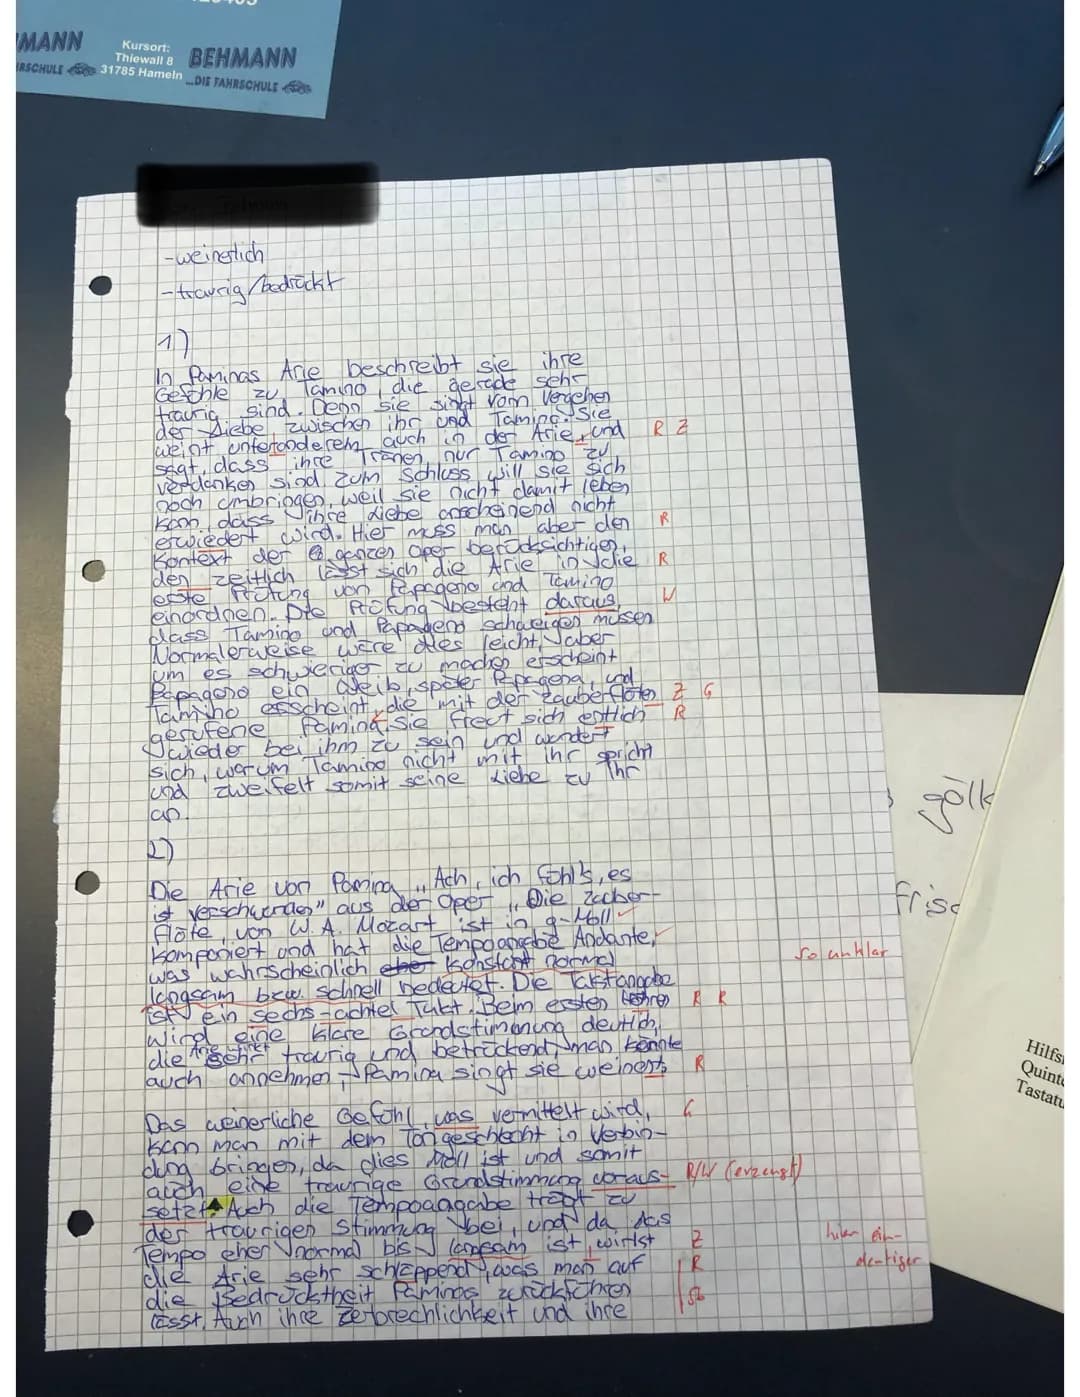 MANN
Kursort:
Thiewall 8
31785 Hameln
BEHMANN
...DIE FAHRSCHULE
-weinerlich
-traurig/bedrückt
1)
In Paminas Arie beschreibt sie ihre
Gefühle zu Tamino, die gerade sehr
traurig sind. Denn sie singt vom Vergehen
der Liebe zwischen ihr und Tamino. Sie
weint unteranderem auch in der Arie, und R Z
sagt, dass ihre Tränen nur Tamino zu
verdanken sind. Zum Schluss will sie sich
noch umbringen, weil sie nicht damit leben
kann, dass ihre Liebe anscheinend nicht
erwiedert wird. Hier muss man aber den R
Kontext der ganzen Oper berücksichtigen,
den zeitlich lässt sich die Arie in die R
erste Prüfung von Papageno und Tamino
einordnen. Die Prüfung besteht daraus, W
dass Tamino und Papageno schweigen müssen
Normalerweise wäre dies leicht, aber
um es schwieriger zu machen erscheint
Papageno ein Weib, später Papagena, und
Tamino erscheint, die mit der Zauberflöten Z G
gerufene Pamina. Sie freut sich entlich R
wieder bei ihm zu sein und wundert
sich, warum Tamino nicht mit ihr spricht
und zweifelt somit seine Liebe zu ihr
an.
2)
Die Arie von Pamina „Ach, ich fühl's, es
ist verschwunden" aus der Oper „Die Zauber-
flöte" von W. A. Mozart ist in g-Moll
komponiert und hat die Tempoangabe Andante,
was wahrscheinlich konstant normal so unklar
langsam bzw. schnell bedeutet. Die Taktangabe
ist ein sechs-achtel Takt. Beim ersten R R
wird eine klare Grundstimmung deutlich,
die Arie wirkt traurig und betrückend, man könnte
auch annehmen, Pamina singt sie weinerts R
Das weinerliche Gefühl, was vermittelt wird, G
kann man mit dem Tongeschlecht in Verbin-
dung bringen, da dies Moll ist und somit
auch eine traurige Grundstimmung voraus- R/W (erzeugt)
setzt. Auch die Tempoangabe trägt zu
der traurigen Stimmung bei, und da das
Tempo eher normal bis langsam ist, wirkt Z hier ein-
die Arie sehr schleppend, was man auf R deutiger
die Bedrücktheit Paminas zurückführen Sb
lässt. Auch ihre Zerbrechlichkeit und ihre
gölk
frisc
Hilfs
Quinte
Tastatu